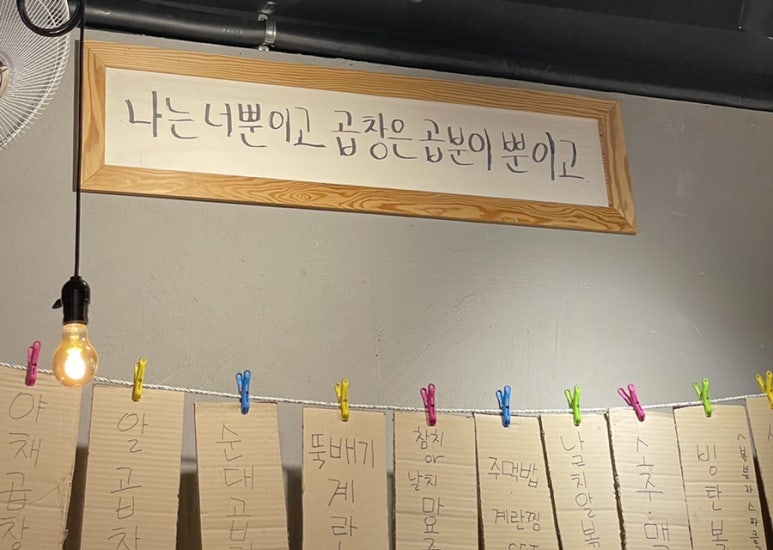 나는 너뿐이고 곱창은 곱분이 뿐이고
야채곱창
알곱창
순대곱
뚝배기
계란
참치
or
날치
마요
주먹밥
계란찜
날치알볶
소주·매
빙탄복